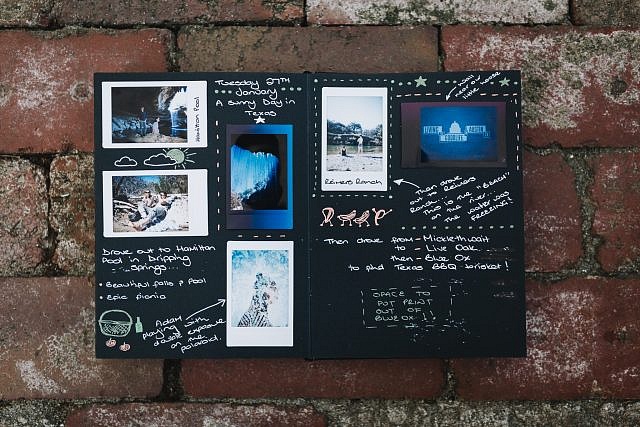 Tuesday 27TH
January
A Sunny Day in
Texas
Hamilton Pool
Drove out to Hamilton
Pool in Dripping
Springs...
Beautiful falls & Pool
Epic Picnic
Adam
playing with
double exposure
on the
polaroid.
Wall
near our
little house
LIVING AUSTIN
Reimers Ranch
Then drove
out to Reimers
Ranch...
This is the "BEACH"
on the river...
the water was
FREEZING!
Then drove from - Micklethwait
to - Live Oak
then - Blue Ox
to find Texas BBQ brisket!
SPACE TO
PUT PRINT
OUT OF
BLUE OX!